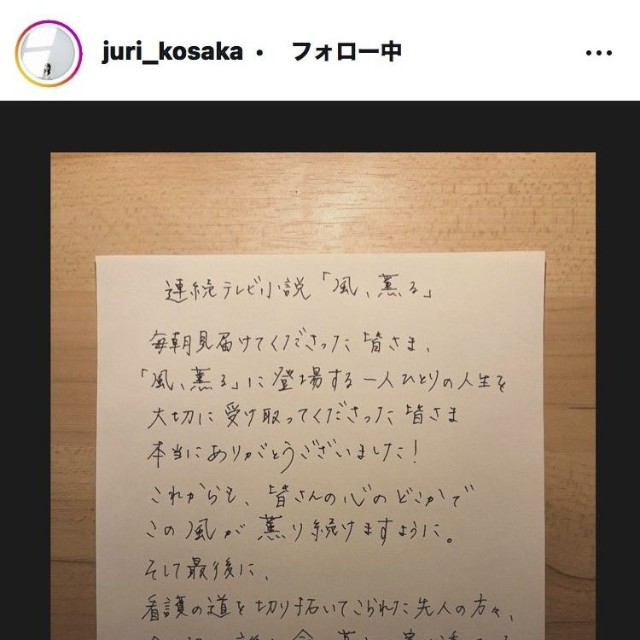 juri_kosaka • フォロー中
連続テレビ小説「風、薫る」
毎朝見届けてくださった皆さま、
「風、薫る」に登場する一人ひとりの人生を
大切に受け取ってくださった皆さま
本当にありがとうございました!
これからも、皆さんの心のどこかで
この風が薫り続けますように。
そして最後に、
看護の道を切り拓いてこられた先人の方々、